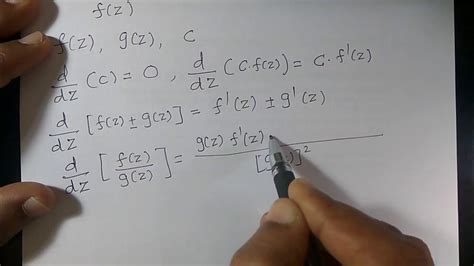 f(z)
f(z), g(z), c
d/dz (c) = 0 , d/dz (c·f(z)) = c·f'(z)
d/dz [f(z) ± g(z)] = f'(z) ± g'(z)
d/dz [f(z)/g(z)] = g(z) f'(z) / [g(z)]²